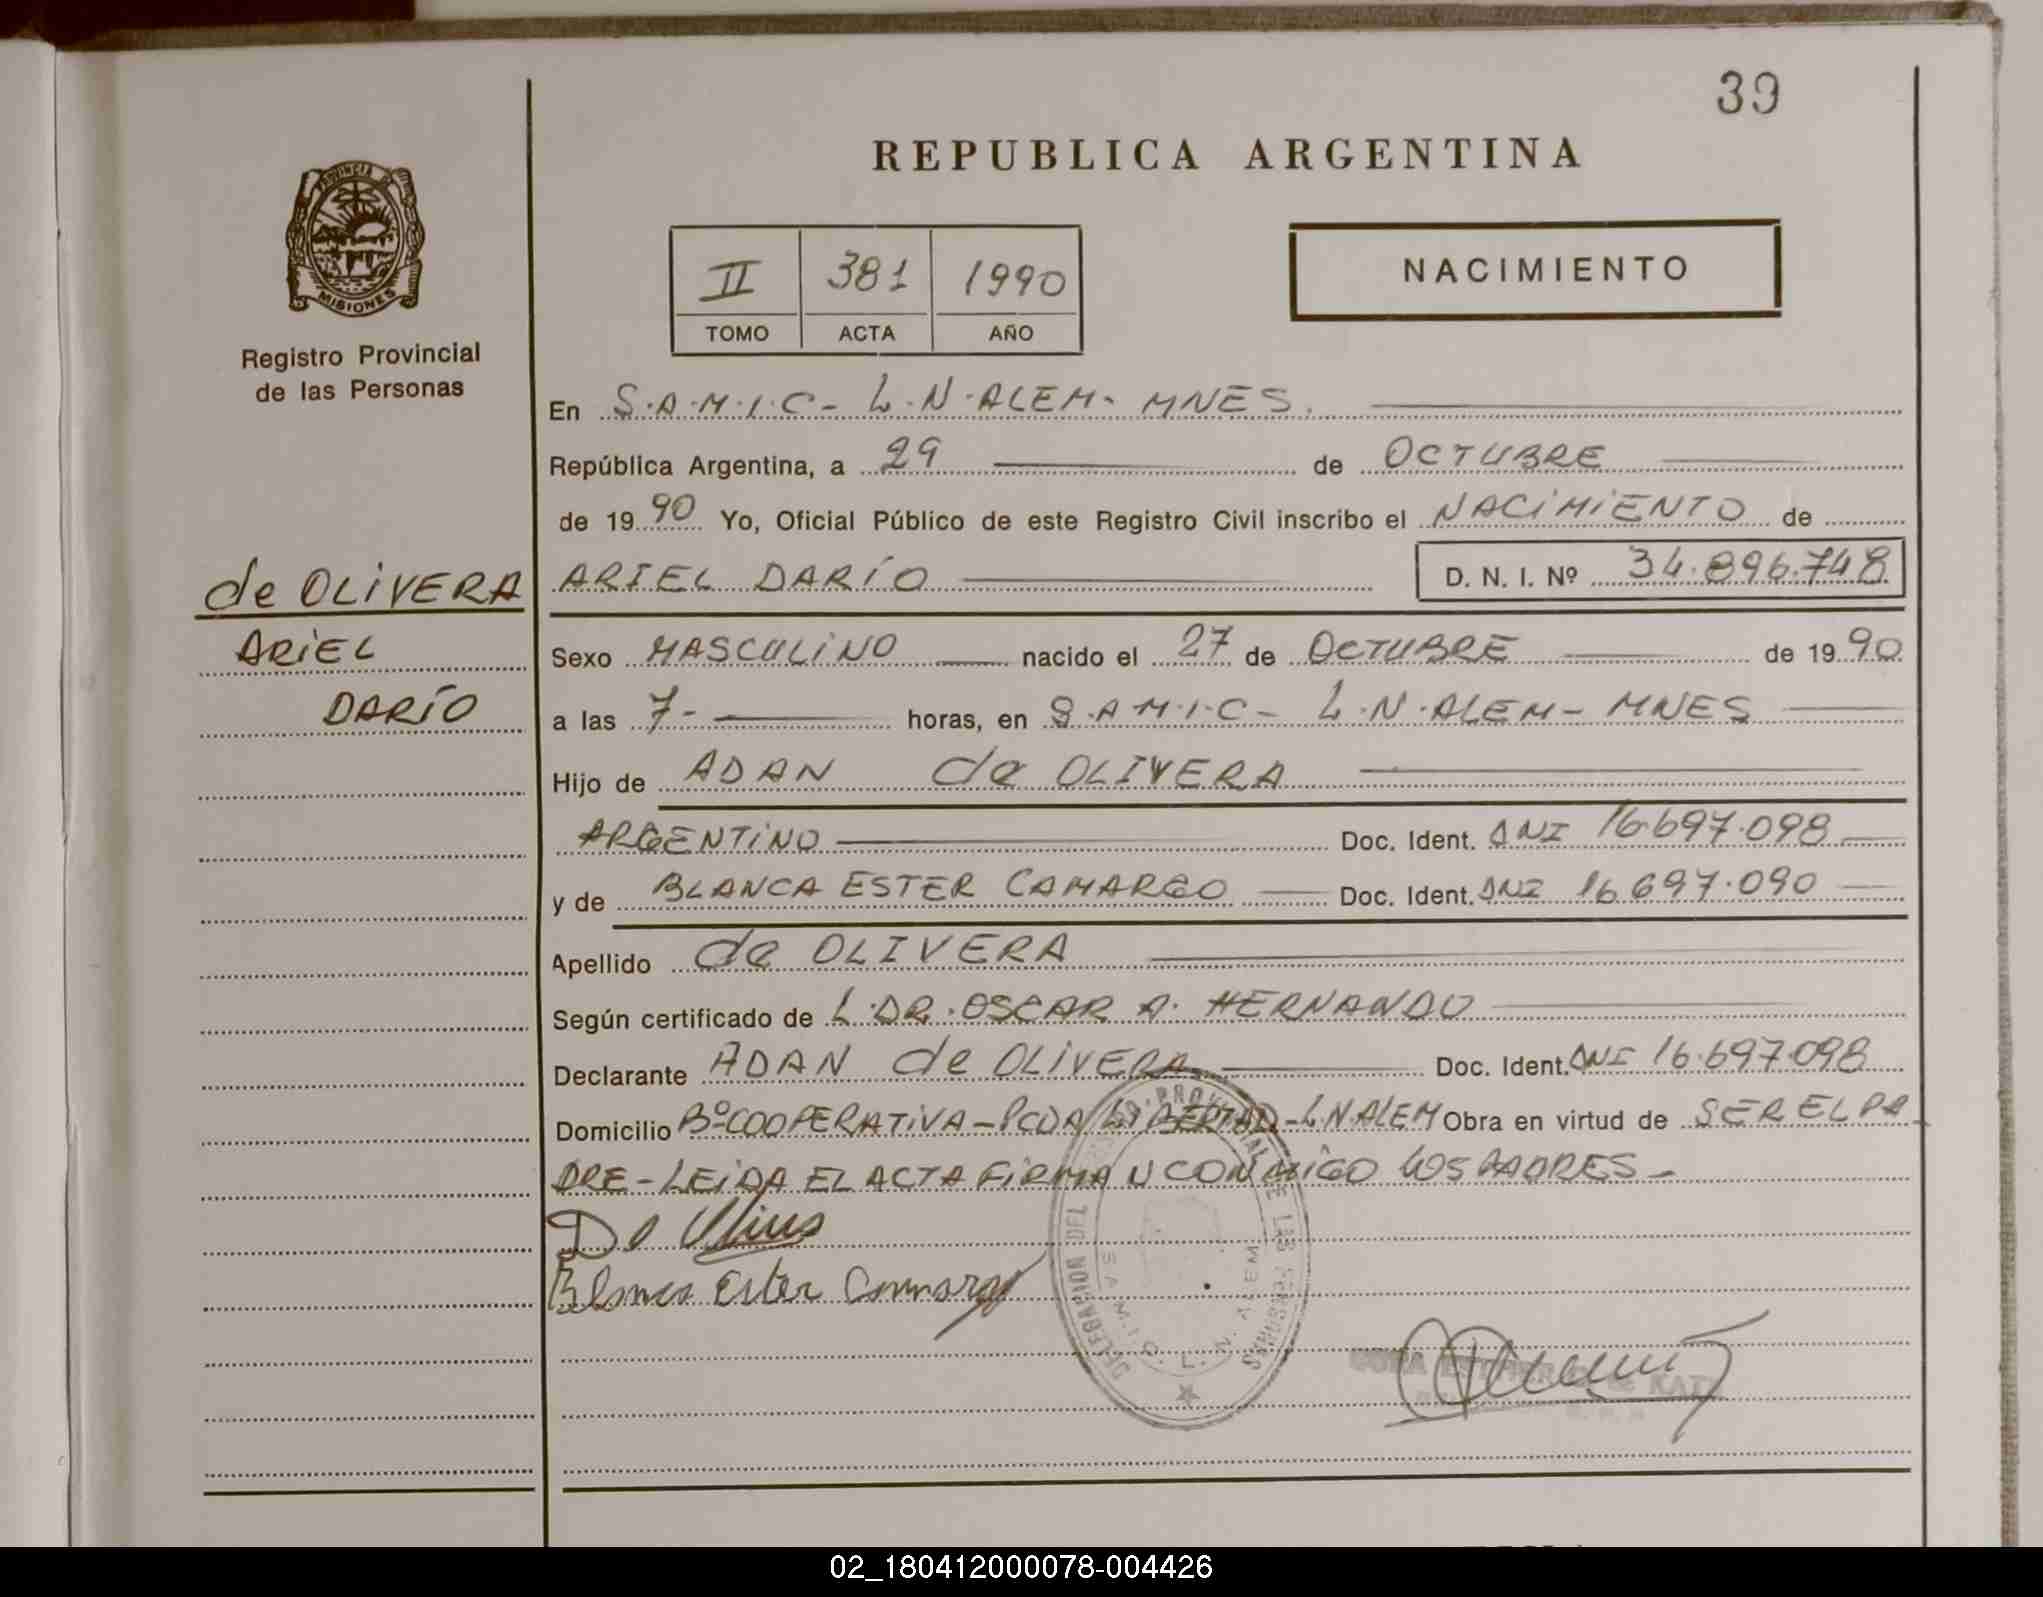 39
REPUBLICA ARGENTINA
PROVINCIA DE
MISIONES
Registro Provincial
de las Personas
II 381 1990
TOMO ACTA AÑO
NACIMIENTO
En S.A.M.I.C- L.N.ALEM- MNES.
República Argentina, a 29 de OCTUBRE
de 1990 Yo, Oficial Público de este Registro Civil inscribo el NACIMIENTO de
de OLIVERA
ARIEL DARÍO
D. N. I. Nº 34.896.748
ARIEL
DARÍO
Sexo MASCULINO nacido el 27 de OCTUBRE de 1990
a las 7- horas, en S.A.M.I.C- L.N.ALEM- MNES
Hijo de ADAN de OLIVERA
ARGENTINO Doc. Ident. DNI 16.697.098
y de BLANCA ESTER CAMARGO Doc. Ident. DNI 16.697.090
Apellido de OLIVERA
Según certificado de L.DR.OSCAR A. HERNANDO
Declarante ADAN de OLIVERA Doc. Ident. DNI 16.697.098
Domicilio Bº COOPERATIVA-PCDA LIBERTAD-L.N.ALEM Obra en virtud de SER EL PA
DRE-LEIDA EL ACTA FIRMAN CONMIGO LOS PADRES-
Blanca Ester Camargo
DELEGACION DEL REGISTRO PROVINCIAL DE LAS PERSONAS
S.A.M.I.C. L. N. ALEM
02_180412000078-004426